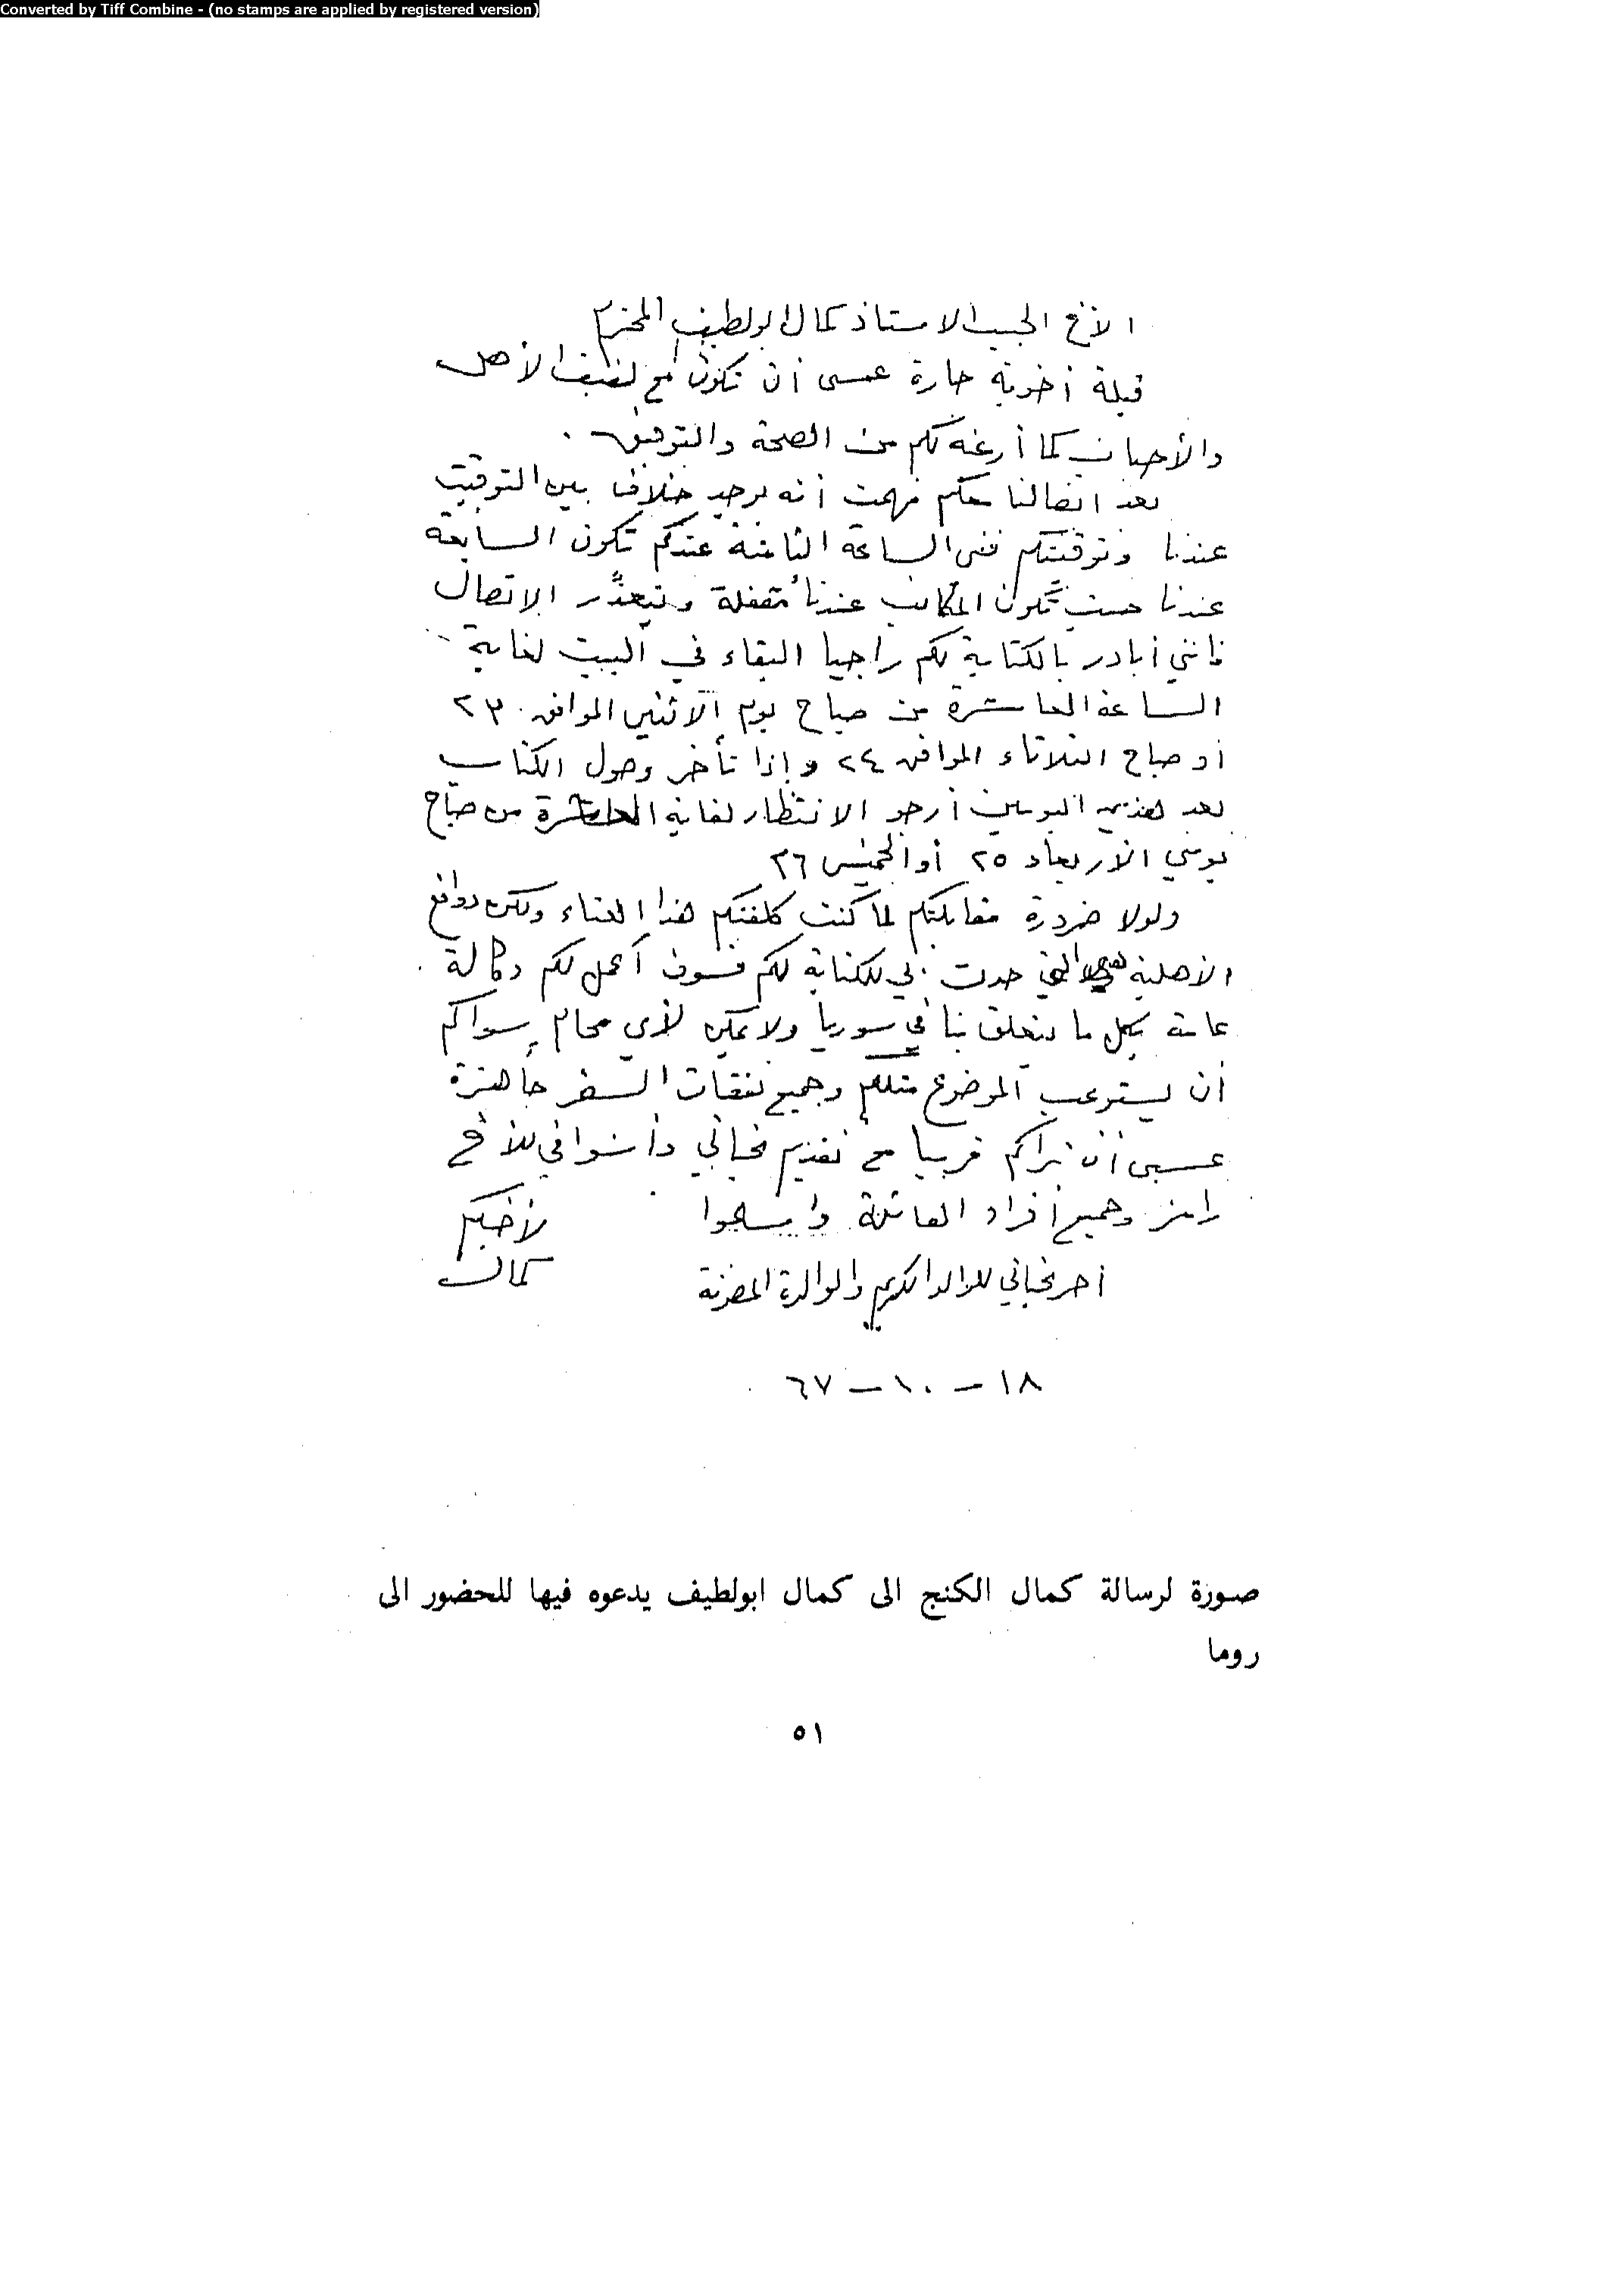 Converted by Tiff Combine - (no stamps are applied by registered version)
الأخ الحبيب الاستاذ كمال ابولطيف المحترم
قبلة أخوية حارة عسى أن تكون مع لفيف الأهل
والأحباب كما أرغبه لكم من الصحة والتوفيق .
بعد اتصالنا معكم فهمت أنه يوجد خلاف بين التوقيت
عندنا وتوقيتكم ففي الساعة الثامنة عندكم تكون السابعة
عندنا حيث تكون المكاتب عندنا مقفلة ويتعذر الاتصال
فانني أبادر بالكتابة لكم راجيا البقاء في البيت لغاية
الساعة العاشرة من صباح يوم الاثنين الموافق ٢٣
أو صباح الثلاثاء الموافق ٢٤ وإذا تأخر وصول الكتاب
بعد هذين اليومين أرجو الانتظار لغاية العاشرة من صباح
يومي الاربعاء ٢٥ أو الخميس ٢٦
ولولا ضرورة مقابلتكم لما كنت كلفتكم هذا العناء ولكن دوافع
الأهلية هي التي حدت بي للكتابة لكم فسوف أعمل لكم وكالة
عامة بكل ما يتعلق بنا في سوريا ولا يمكن لأي محام سواكم
أن يستوعب الموضوع مثلكم وجميع نفقات السفر جاهزة
عسى أن نراكم قريبا مع تقديم تحياتي وأشواقي للأخ
رامز وجميع أفراد العائلة واسلموا
لأخيكم
كمال
أحر تحياتي للوالد الكريم والوالدة المصونة
١٨ - ١٠ - ٦٧
صورة لرسالة كمال الكنج الى كمال ابولطيف يدعوه فيها للحضور الى
روما
٥١